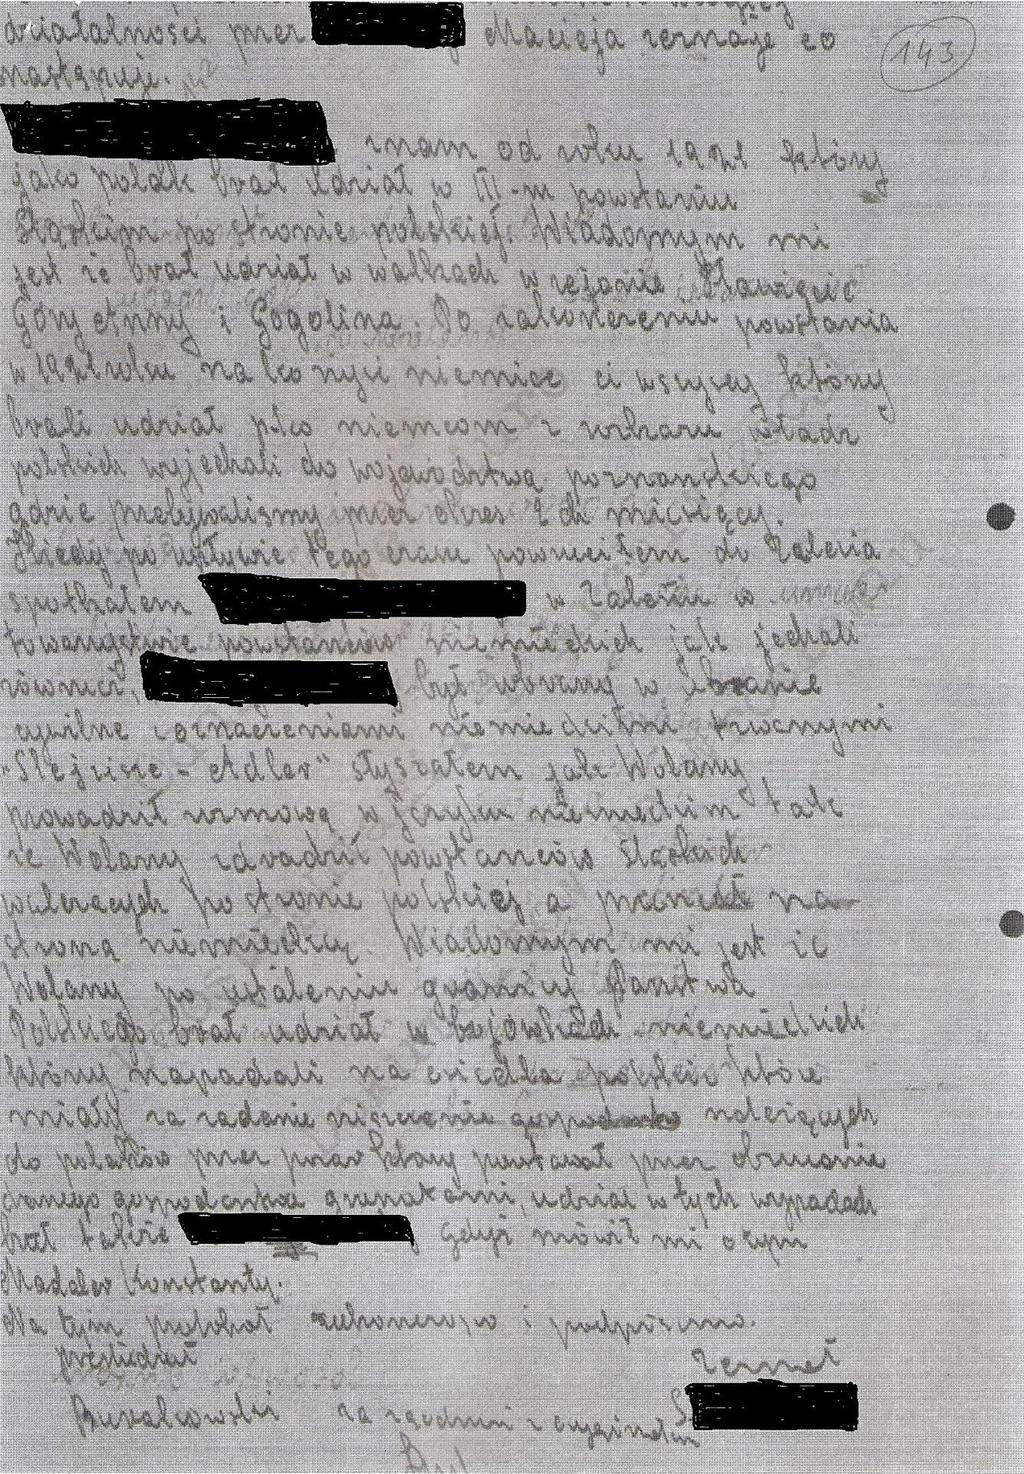 działalności przez Macieja zeznaje co
następuje.
143
znam od roku 1921 który
jako polak brał udział w III-m powstaniu
Śląskim po stronie polskiej. Wiadomym mi
jest iż brał udział w walkach w rejonie Sławięcic
Góry Anny i Gogolina. Po zakończeniu powstania
w 1921 roku na korzyść niemiec ci wszyscy który
brali udział p/ko niemcom z rozkazu władz
polskich wyjechali do województwa poznańskiego
gdzie przebywaliśmy przez okres 2ch miesięcy.
Kiedy po upływie tego czasu powruciłem do Zalesia
spotkałem w Zalesiu w
towarzystwie powstańców niemieckich jak jechali
również, był ubrany w ubranie
cywilne z oznaczeniami niemieckimi zwanymi
"Slejzisze - Adler" słyszałem jak Wolany
prowadził rozmowę w języku niemieckim tak
że Wolany zdradził powstańców Śląskich
walczących po stronie polskiej a przeszedł na
stronę niemiecką. Wiadomym mi jest iż
Wolany po ustaleniu granicy Państwa
Polskiego brał udział w bojówkach niemieckich
który napadali na osiedla polskie które
miały za zadanie niszczenie gospodarstw należących
do polaków przez pożar który powstawał przez obrzucanie
danego gospodarstwa granatami, udział w tych wypadach
brał także gdyż mówił mi o tym
Madaler Konstanty.
Na tym protokół zakończono i podpisano.
przesłuchał zeznał
Burakowski za zgodność z oryginałem